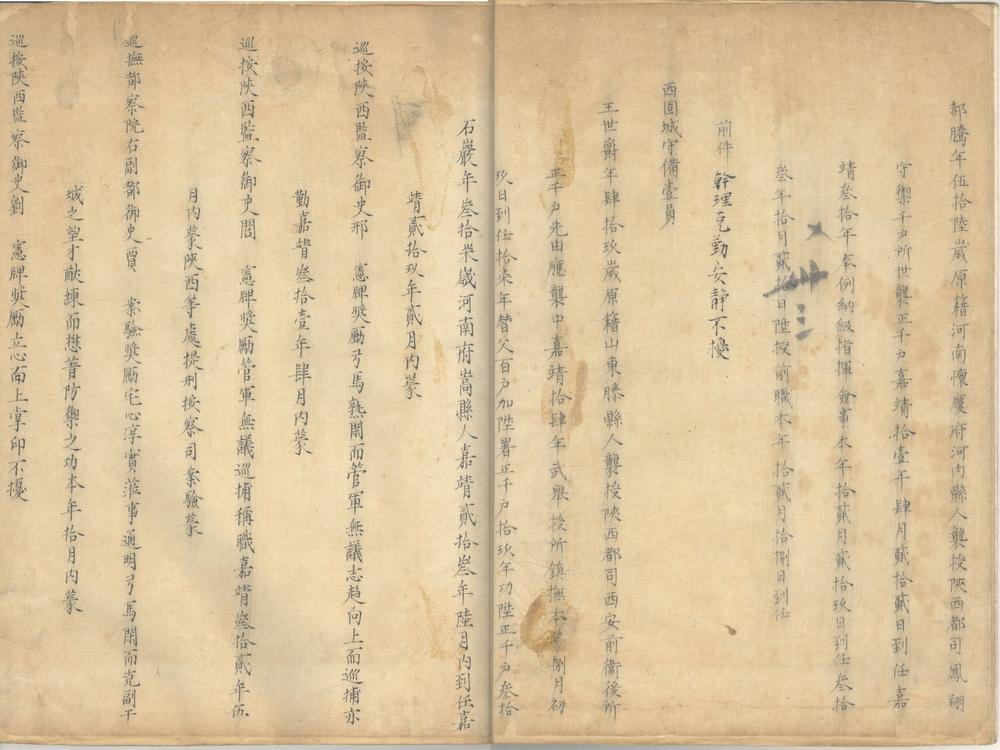 郝騰年伍拾陸歲原籍河南懷慶府河內縣人襲授陝西都司鳳翔
守禦千戶所世襲正千戶嘉靖拾壹年肆月貳拾貳日到任嘉
靖叁拾年奉例納級指揮僉事本年拾貳月貳拾玖日到任叁拾
叁年拾月貳拾日陞授前職本年拾貳月拾捌日到任
前件幹理克勤安靜不擾
西固城守備壹員
王世爵年肆拾玖歲原籍山東滕縣人襲授陝西都司西安前衞後所
正千戶先由應襲中嘉靖拾肆年武舉授所鎮撫本年捌月初
玖日到任拾柒年替父百戶加陞署正千戶拾玖年功陞正千戶叁拾
石巖年叁拾柒歲河南府嵩縣人嘉靖貳拾叁年陸月內到任嘉
靖貳拾玖年貳月內蒙
巡按陝西監察御史邢 憲牌獎勵弓馬熟閑而管軍無議志趋向上而巡捕亦
勤嘉靖叁拾壹年肆月內蒙
巡按陝西監察御史閻 憲牌獎勵管軍無議巡捕稱職嘉靖叁拾貳年伍
月內蒙陝西等處提刑按察司案驗蒙
巡撫都察院右副都御史賈 案驗獎勵宅心淳實蒞事通明弓馬閑而克副干
城之望才猷練而懋著防禦之功本年拾月內蒙
巡按陝西監察御史劉 憲牌獎勵立心向上掌印不擾